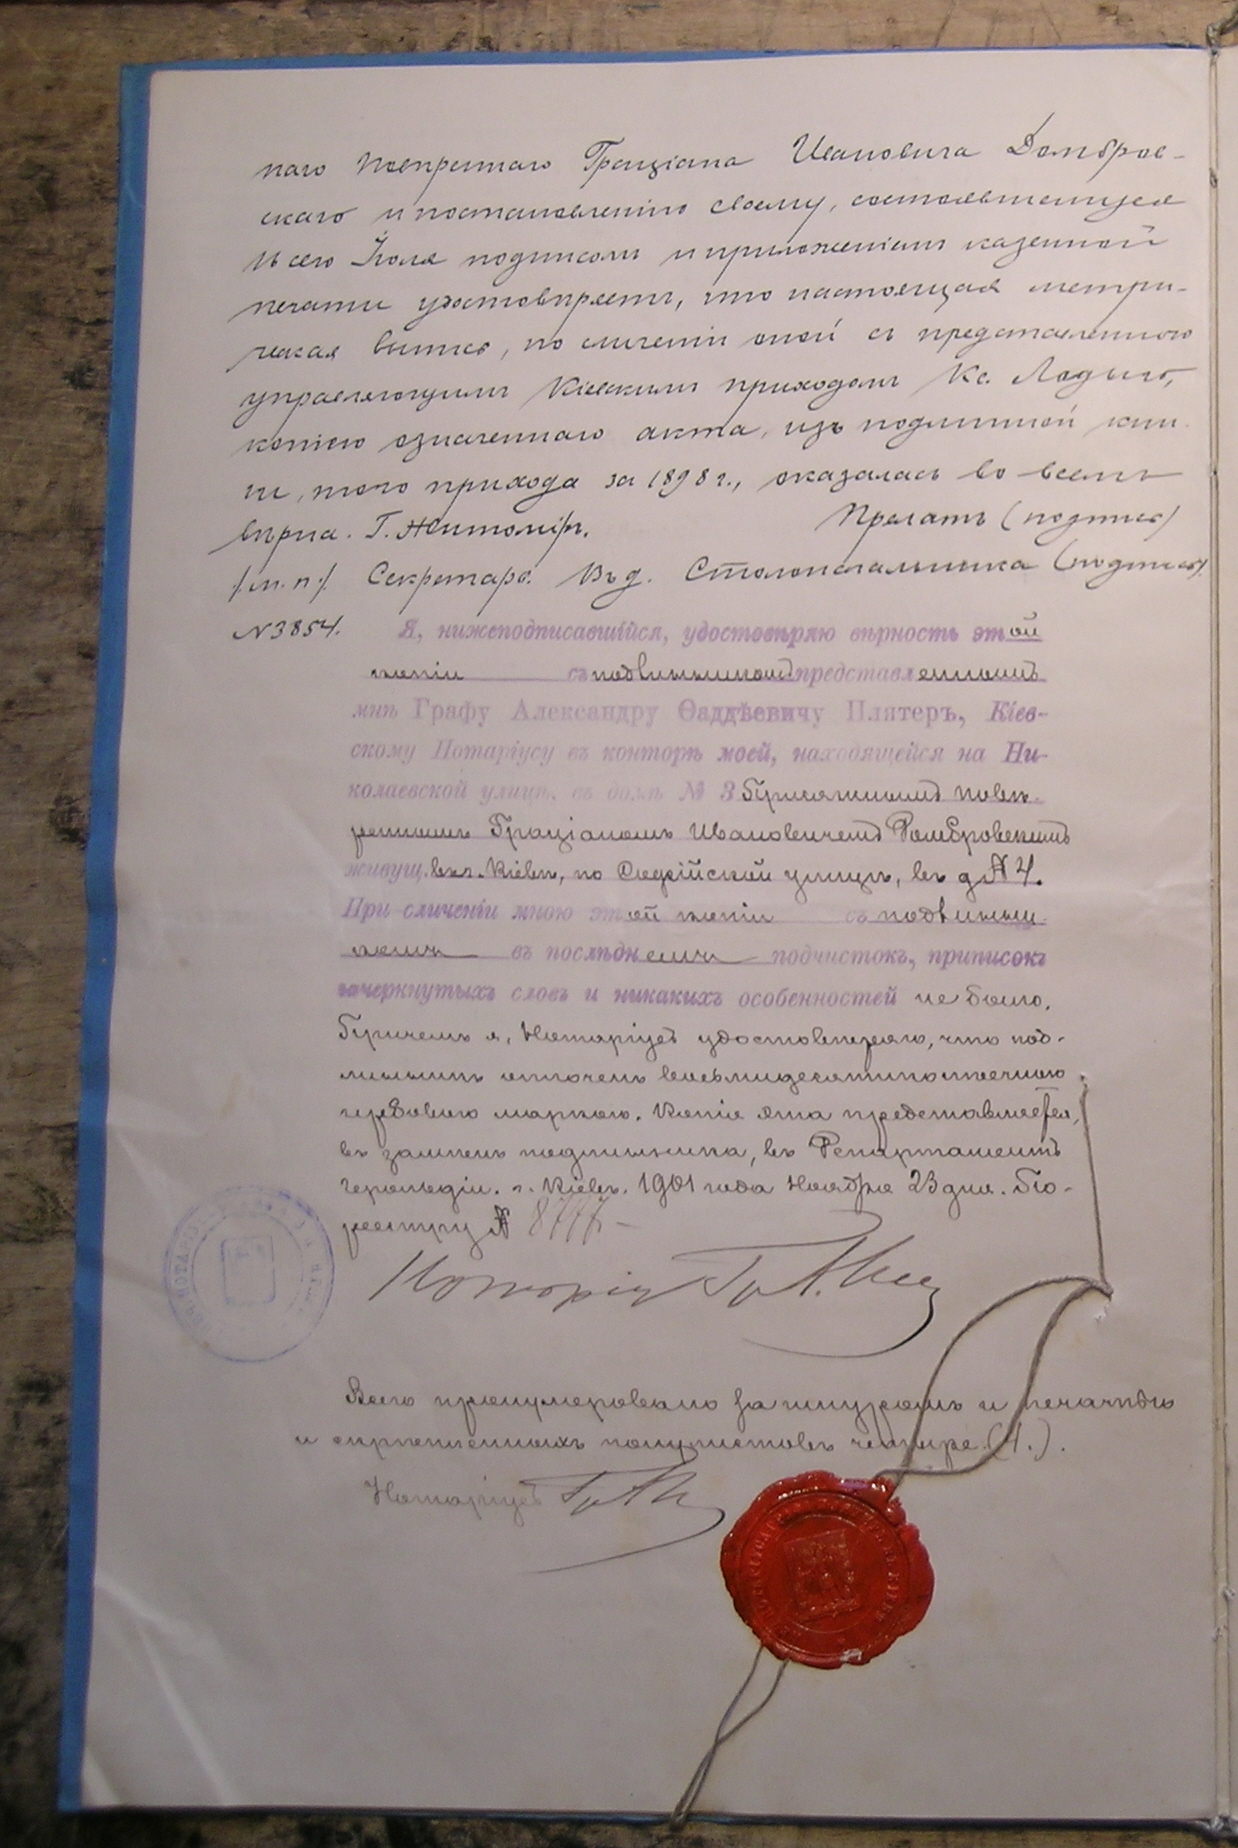 наго повѣреннаго Граціана Ивановича Домбров-
скаго и постановленію своему, состоявшемуся
сего Іюля подписом и приложеніем казенной
печати удостовѣряетъ, что настоящая метри-
ческая выпись, по сличеніи оной съ представленною
управляющимъ Кіевскимъ приходомъ Кс.
копіею означеннаго акта, изъ подлинной кни-
ги, того прихода за 1898 г., оказалась во всемъ
вѣрна. Г. Житоміръ. Прелатъ (подпись)
/м. п./ Секретарь. Въ д. Столоначальника (подпись).
№3854. Я, нижеподписавшійся, удостовѣряю вѣрность этой
копіи съ подлинникомъ представленнымъ
мнѣ Графу Александру Ѳаддѣевичу Плятеръ, Кіев-
скому Нотаріусу въ конторѣ моей, находящейся на Ни-
колаевской улицѣ, въ домѣ № 3 Присяжнымъ повѣ-
реннымъ Граціаномъ Ивановичемъ Домбровскимъ
живущ. въ г. Кіевѣ, по Софійской улицѣ, въ д № 4.
При сличеніи мною этой копіи съ подлинни-
комъ въ послѣднемъ подчистокъ, приписокъ
зачеркнутыхъ словъ и никакихъ особенностей не было.
Причемъ я, Нотаріусъ удостовѣряю, что под-
линникъ оплоченъ восьмидесятикопѣечною
гербовою маркою. Копія эта представляется,
въ замѣнъ подлинника, въ Департаментъ
герольдіи. г. Кіевъ. 1901 года Ноября 23 дня. По
реестру №
Нотаріусъ Гр. А.
Всего пронумеровано за шнуромъ и печатью
и скрѣпленныхъ полулистовъ четыре (4.).
Нотаріусъ Гр. А.